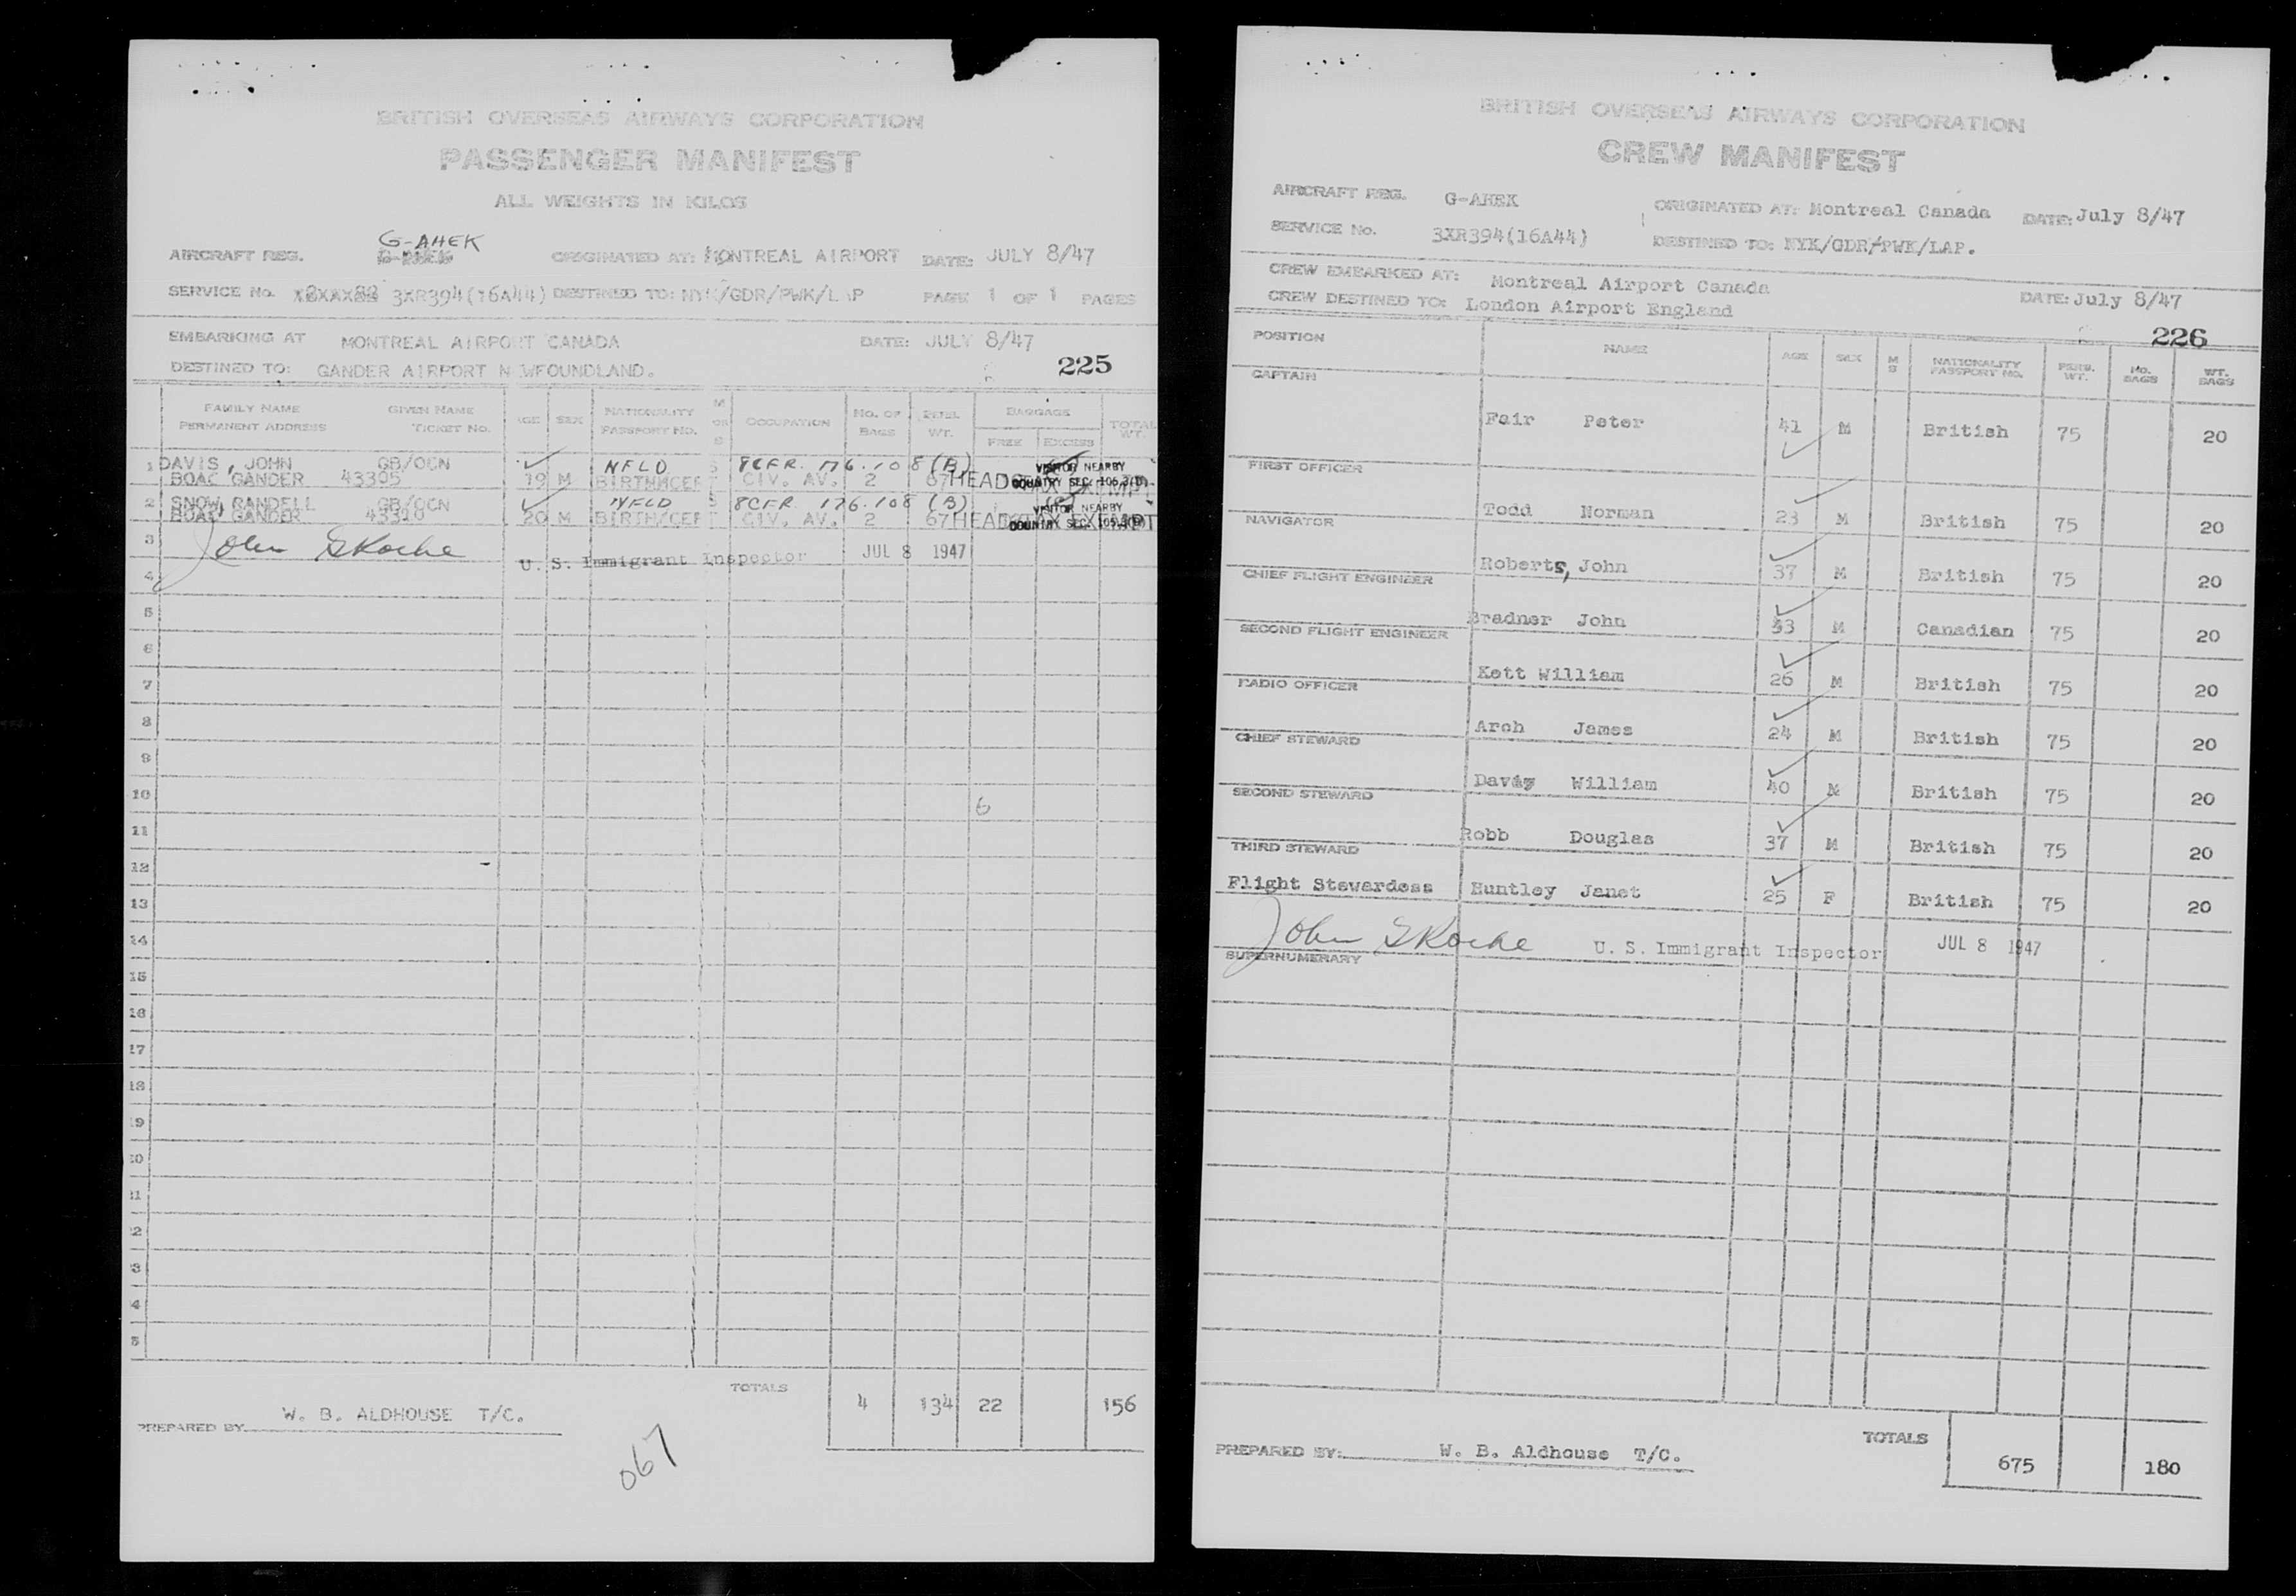 BRITISH OVERSEAS AIRWAYS CORPORATION
PASSENGER MANIFEST
ALL WEIGHTS IN KILOS
G-AHEK
AIRCRAFT REG. G-AHEK ORIGINATED AT: MONTREAL AIRPORT DATE: JULY 8/47
SERVICE No. 3XR394(16A44) DESTINED TO: NYK/GDR/PWK/LAP PAGE 1 OF 1 PAGES
EMBARKING AT MONTREAL AIRPORT CANADA DATE: JULY 8/47
225
DESTINED TO: GANDER AIRPORT N WFOUNDLAND.
FAMILY NAME GIVEN NAME AGE SEX NATIONALITY M OR S OCCUPATION No. OF BAGS BAGGAGE TOTAL WT.
PERMANENT ADDRESS TICKET No. PASSPORT NO. WT. FREE EXCESS
1 DAVIS, JOHN GB/OCN NFLD S 8CFR. 176.108(B) VISITOR NEARBY
BOAC GANDER 43305 19 M BIRTH/CER CIV. AV. 2 67 HEAD TAX EXEMPT COUNTRY SEC.
2 SNOW, RANDELL GB/OCN NFLD S 8CFR. 176.108 (B) VISITOR NEARBY
BOAC GANDER 43310 20 M BIRTH/CER CIV. AV. 2 67 HEAD TAX EXEMPT COUNTRY SEC.
3 John U. S. Immigrant Inspector JUL 8 1947
4
5
6
7
8
9
10 6
11
12
13
14
15
16
17
18
19
20
21
2
3
4
5
TOTALS 4 134 22 156
PREPARED BY W. B. ALDHOUSE T/C.
067
BRITISH OVERSEAS AIRWAYS CORPORATION
CREW MANIFEST
AIRCRAFT REG. G-AHEK ORIGINATED AT: Montreal Canada DATE: July 8/47
SERVICE No. 3XR394(16A44) DESTINED TO: NYK/GDR/PWK/LAP.
CREW EMBARKED AT: Montreal Airport Canada
CREW DESTINED TO: London Airport England DATE: July 8/47
226
POSITION NAME AGE SEX M S NATIONALITY PASSPORT NO. PERS. WT. No. BAGS WT. BAGS
CAPTAIN
Fair Peter 41 M British 75 20
FIRST OFFICER
Todd Norman 23 M British 75 20
NAVIGATOR
Roberts, John 37 M British 75 20
CHIEF FLIGHT ENGINEER
Bradner John 33 M Canadian 75 20
SECOND FLIGHT ENGINEER
Kett William 26 M British 75 20
RADIO OFFICER
Arch James 24 M British 75 20
CHIEF STEWARD
William 40 M British 75 20
SECOND STEWARD
Robb Douglas 37 M British 75 20
THIRD STEWARD
Flight Stewardess Huntley Janet 25 F British 75 20
John U. S. Immigrant Inspector JUL 8 1947
SUPERNUMERARY
TOTALS 675 180
PREPARED BY: W. B. Aldhouse T/C.